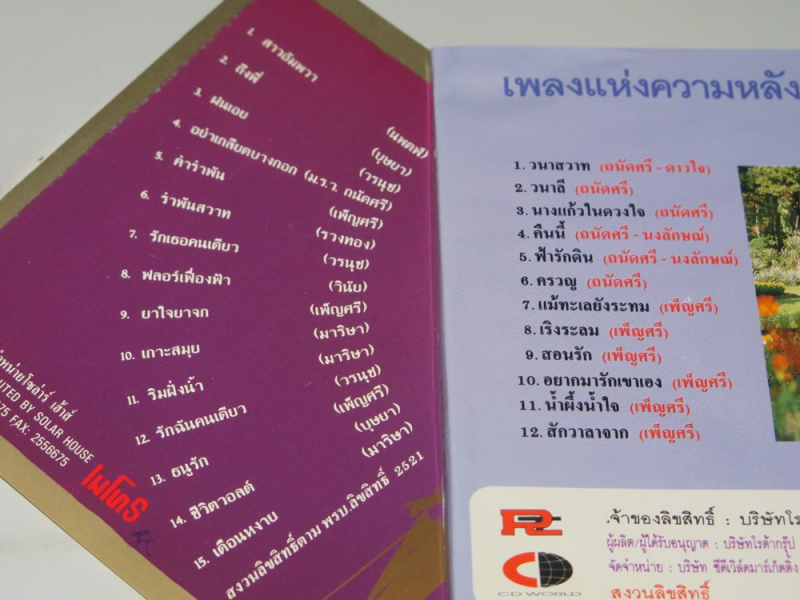 1. สาวอัมพวา
2. ถึงพี่
3. ฝนเอย (นพดฬ)
4. อย่าเกลียดบางกอก (ม.ร.ว. ถนัดศรี) (บุษยา)
5. คำรำพัน (วรนุช)
6. รำพันสวาท (เพ็ญศรี)
7. รักเธอคนเดียว (รวงทอง)
8. ฟลอร์เฟื่องฟ้า (วรนุช)
9. ยาใจยาจก (วินัย)
10. เกาะสมุย (เพ็ญศรี)
11. ริมฝั่งน้ำ (มาริษา)
12. รักฉันคนเดียว (มาริษา)
13. ธนูรัก (วรนุช)
14. ชีวิตวอลต์ (เพ็ญศรี)
15. เดือนหงาย (บุษยา)
(มาริษา)
สงวนลิขสิทธิ์ตาม พรบ.ลิขสิทธิ์ 2521
จำหน่ายโซล่าร์ เฮ้าส์
UTED BY SOLAR HOUSE
75 FAX: 2556675
เมโทร
เพลงแห่งความหลัง
1. วนาสวาท (ถนัดศรี - ดาวใจ)
2. วนาลี (ถนัดศรี)
3. นางแก้วในดวงใจ (ถนัดศรี)
4. คืนนี้ (ถนัดศรี - นงลักษณ์)
5. ฟ้ารักดิน (ถนัดศรี - นงลักษณ์)
6. ครวญ (ถนัดศรี)
7. แม้ทะเลยังระทม (เพ็ญศรี)
8. เริงระลม (เพ็ญศรี)
9. สอนรัก (เพ็ญศรี)
10. อยากมารักเขาเอง (เพ็ญศรี)
11. น้ำผึ้งน้ำใจ (เพ็ญศรี)
12. สักวาลาจาก (เพ็ญศรี)
เจ้าของลิขสิทธิ์ : บริษัทโร
ผู้ผลิต/ผู้ได้รับอนุญาต : บริษัทโรต้ากรุ๊ป
จัดจำหน่าย : บริษัท ซีดีเวิล์ดมาร์เก็ตติ้ง
สงวนลิขสิทธิ์
CD WORLD